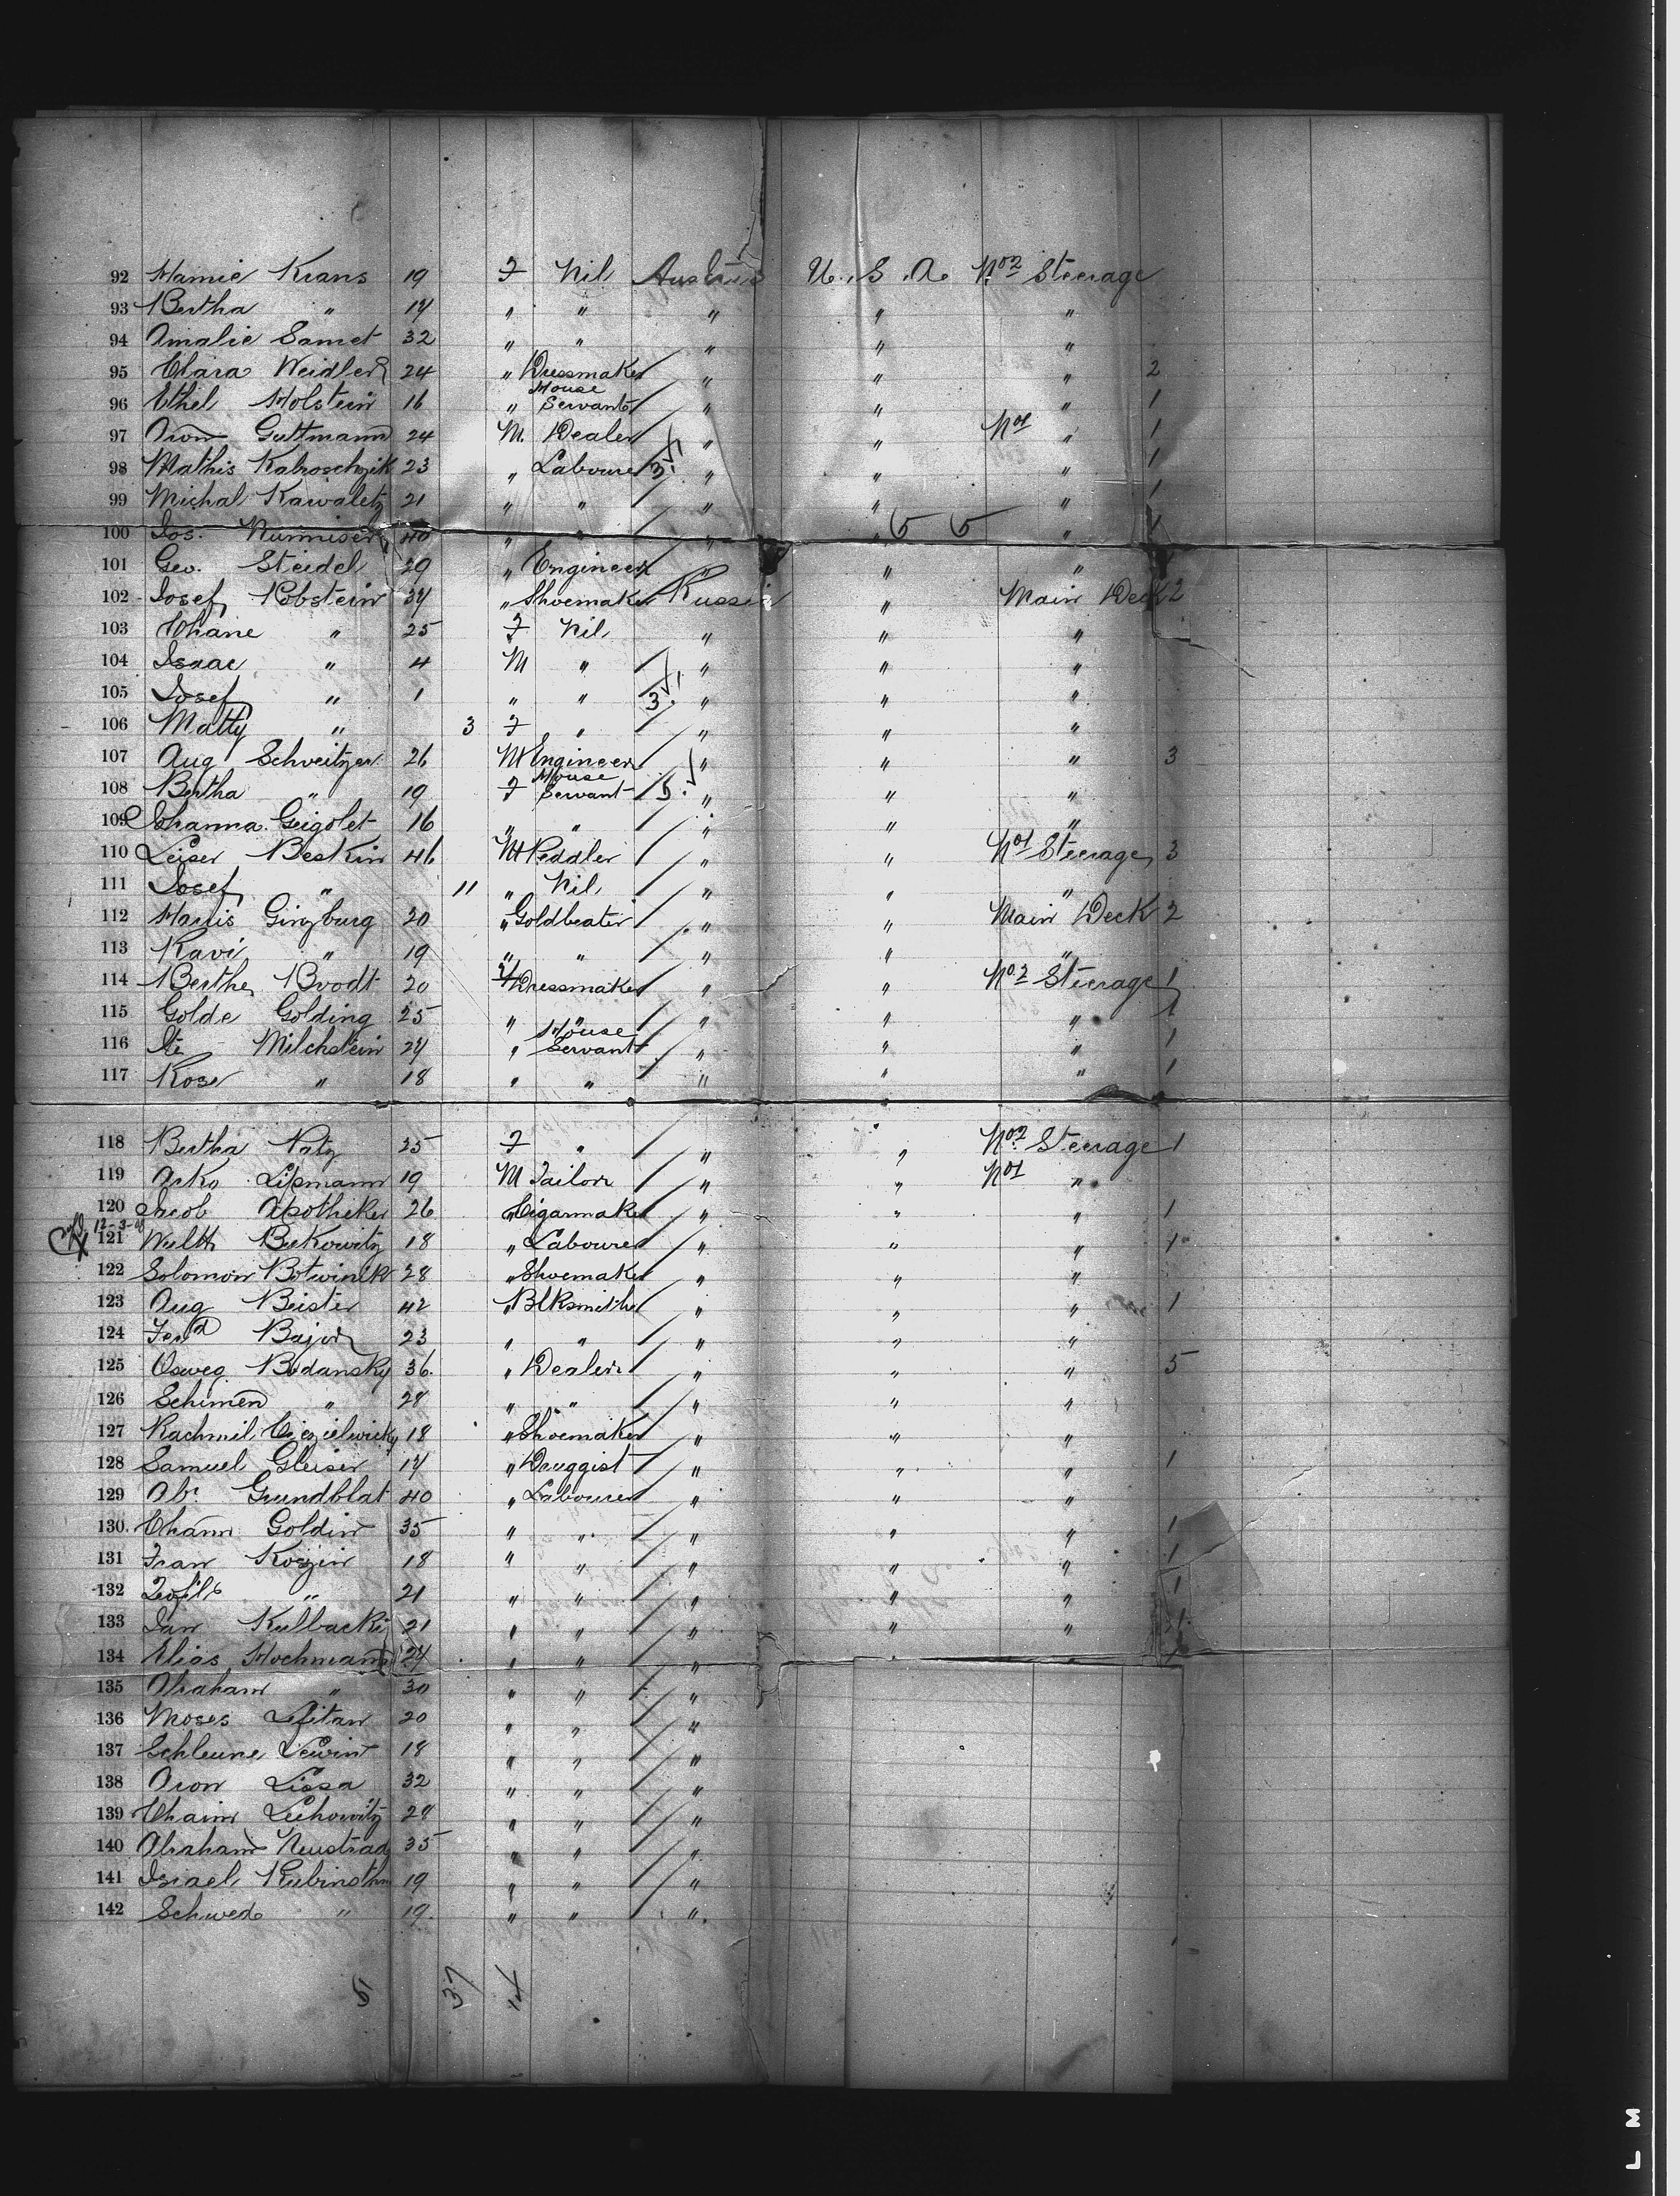 92 Mamie Krans 19 F Nil Austria U.S.A. No 2 Steerage
93 Bertha " 14 " " " " "
94 Amalie Samet 32 " " " " "
95 Clara Weidler 24 " Dressmaker " " " 2
96 Ethel Holstein 16 " House Servant " " " 1
97 Aron Guttmann 24 M. Dealer " " No 1 " 1
98 Mathis 23 " Labourer " " " 1
99 Michal Kawaletz 21 " " " " " 1
100 Jos. 40 " " " " " 1
101 Geo. Steidel 29 " Engineer " " "
102 Josef Robstein 34 " Shoemaker Russia " Main Deck 2
103 Chane " 25 F Nil " " "
104 Isaac " 4 M " " " "
105 Josef " 1 " " " " "
106 Matty " 3 F " " " "
107 Aug Schveitzer 26 M Engineer " " " 3
108 Bertha " 19 F House Servant " " "
109 Johanna Geigolet 16 " " " " "
110 Leiser Beskin 46 M Peddler " " No 1 Steerage 3
111 Josef " 11 " Nil " " "
112 Harris Ginzburg 20 " Goldbeater " " Main Deck 2
113 Ravi " 19 " " " " "
114 Berthe Brodt 20 F Dressmaker " " No. 2 Steerage 1
115 Golde Golding 25 " " " " " 1
116 Milchstein 24 " House Servant " " " 1
117 Rose " 18 " " " " " 1
118 Bertha Patz 35 F " " " No. 2 Steerage 1
119 Arko Lipmann 19 M Tailor " " No 1 "
120 Jacob Apotheker 26 " Cigarmaker " " " 1
12-3-08
121 Berkowitz 18 " Labourer " " " 1
122 Solomon Botwinik 28 " Shoemaker " " "
123 Aug Beister 42 " Blksmith " " " 1
124 Ferd Bajor 23 " " " " "
125 Bodansky 36. " Dealer " " " 5
126 Schimen " 28 " " " " "
127 Rachmil 18 " Shoemaker " " "
128 Samuel Gleiser 14 " Druggist " " " 1
129 Abr. Grundblat 40 " Labourer " " "
130. Chaim Goldin 35 " " " " " 1
131 Ivan Koszin 18 " " " " " 1
132 Teofil " 21 " " " " " 1
133 Jan Kulbacki 21 " " " " " 1
134 Elias Hochmann 24 " " "
135 Abraham " 30 " " "
136 Moses 20 " " "
137 Schleune Lewin 18 " " "
138 Aron Lissa 32 " " "
139 Chaim Lechowitz 24 " " "
140 Abraham Neustrad 35 " " "
141 Israel 19 " " "
142 Schwed " 19. " " "
5 37 14
L M